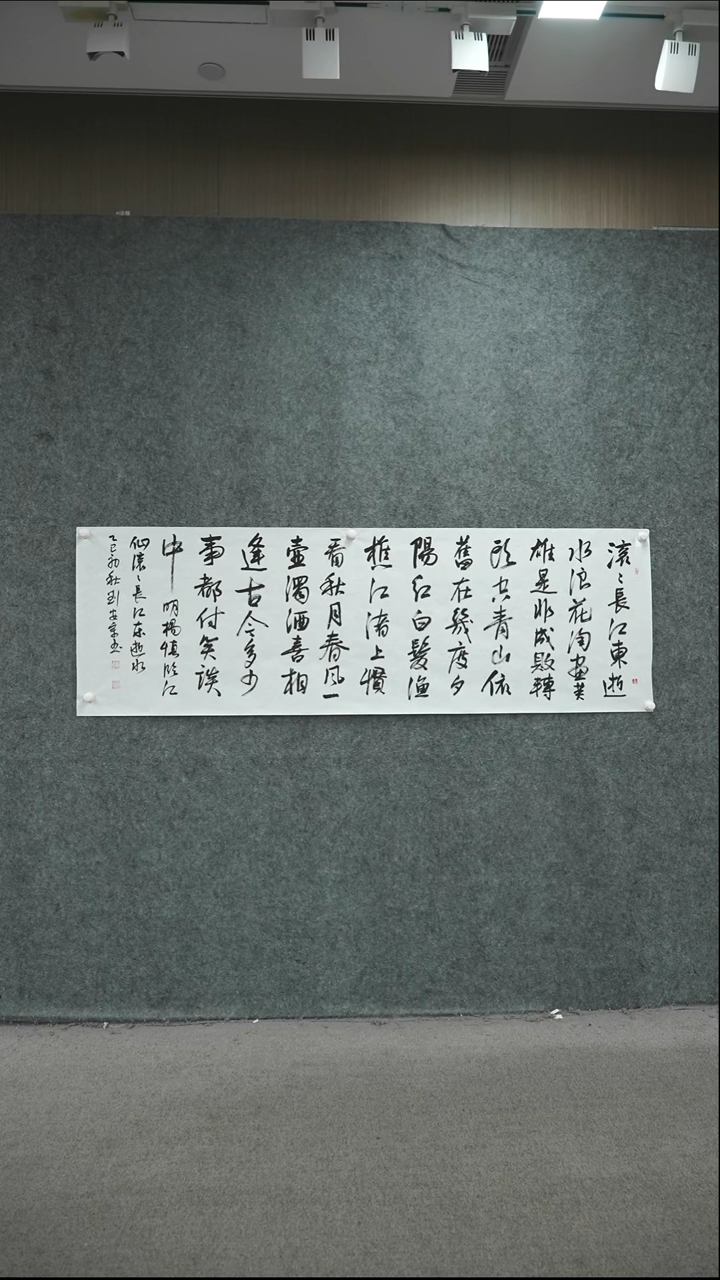 滚〻長江東逝
水浪花淘盡英
雄是非成敗轉
頭空青山依
舊在幾度夕
陽紅白髮漁
樵江渚上慣
看秋月春風一
壺濁酒喜相
逢古今多少
事都付笑談
中 明楊慎临江
仙滚〻長江东逝水
乙巳初秋刘安京书